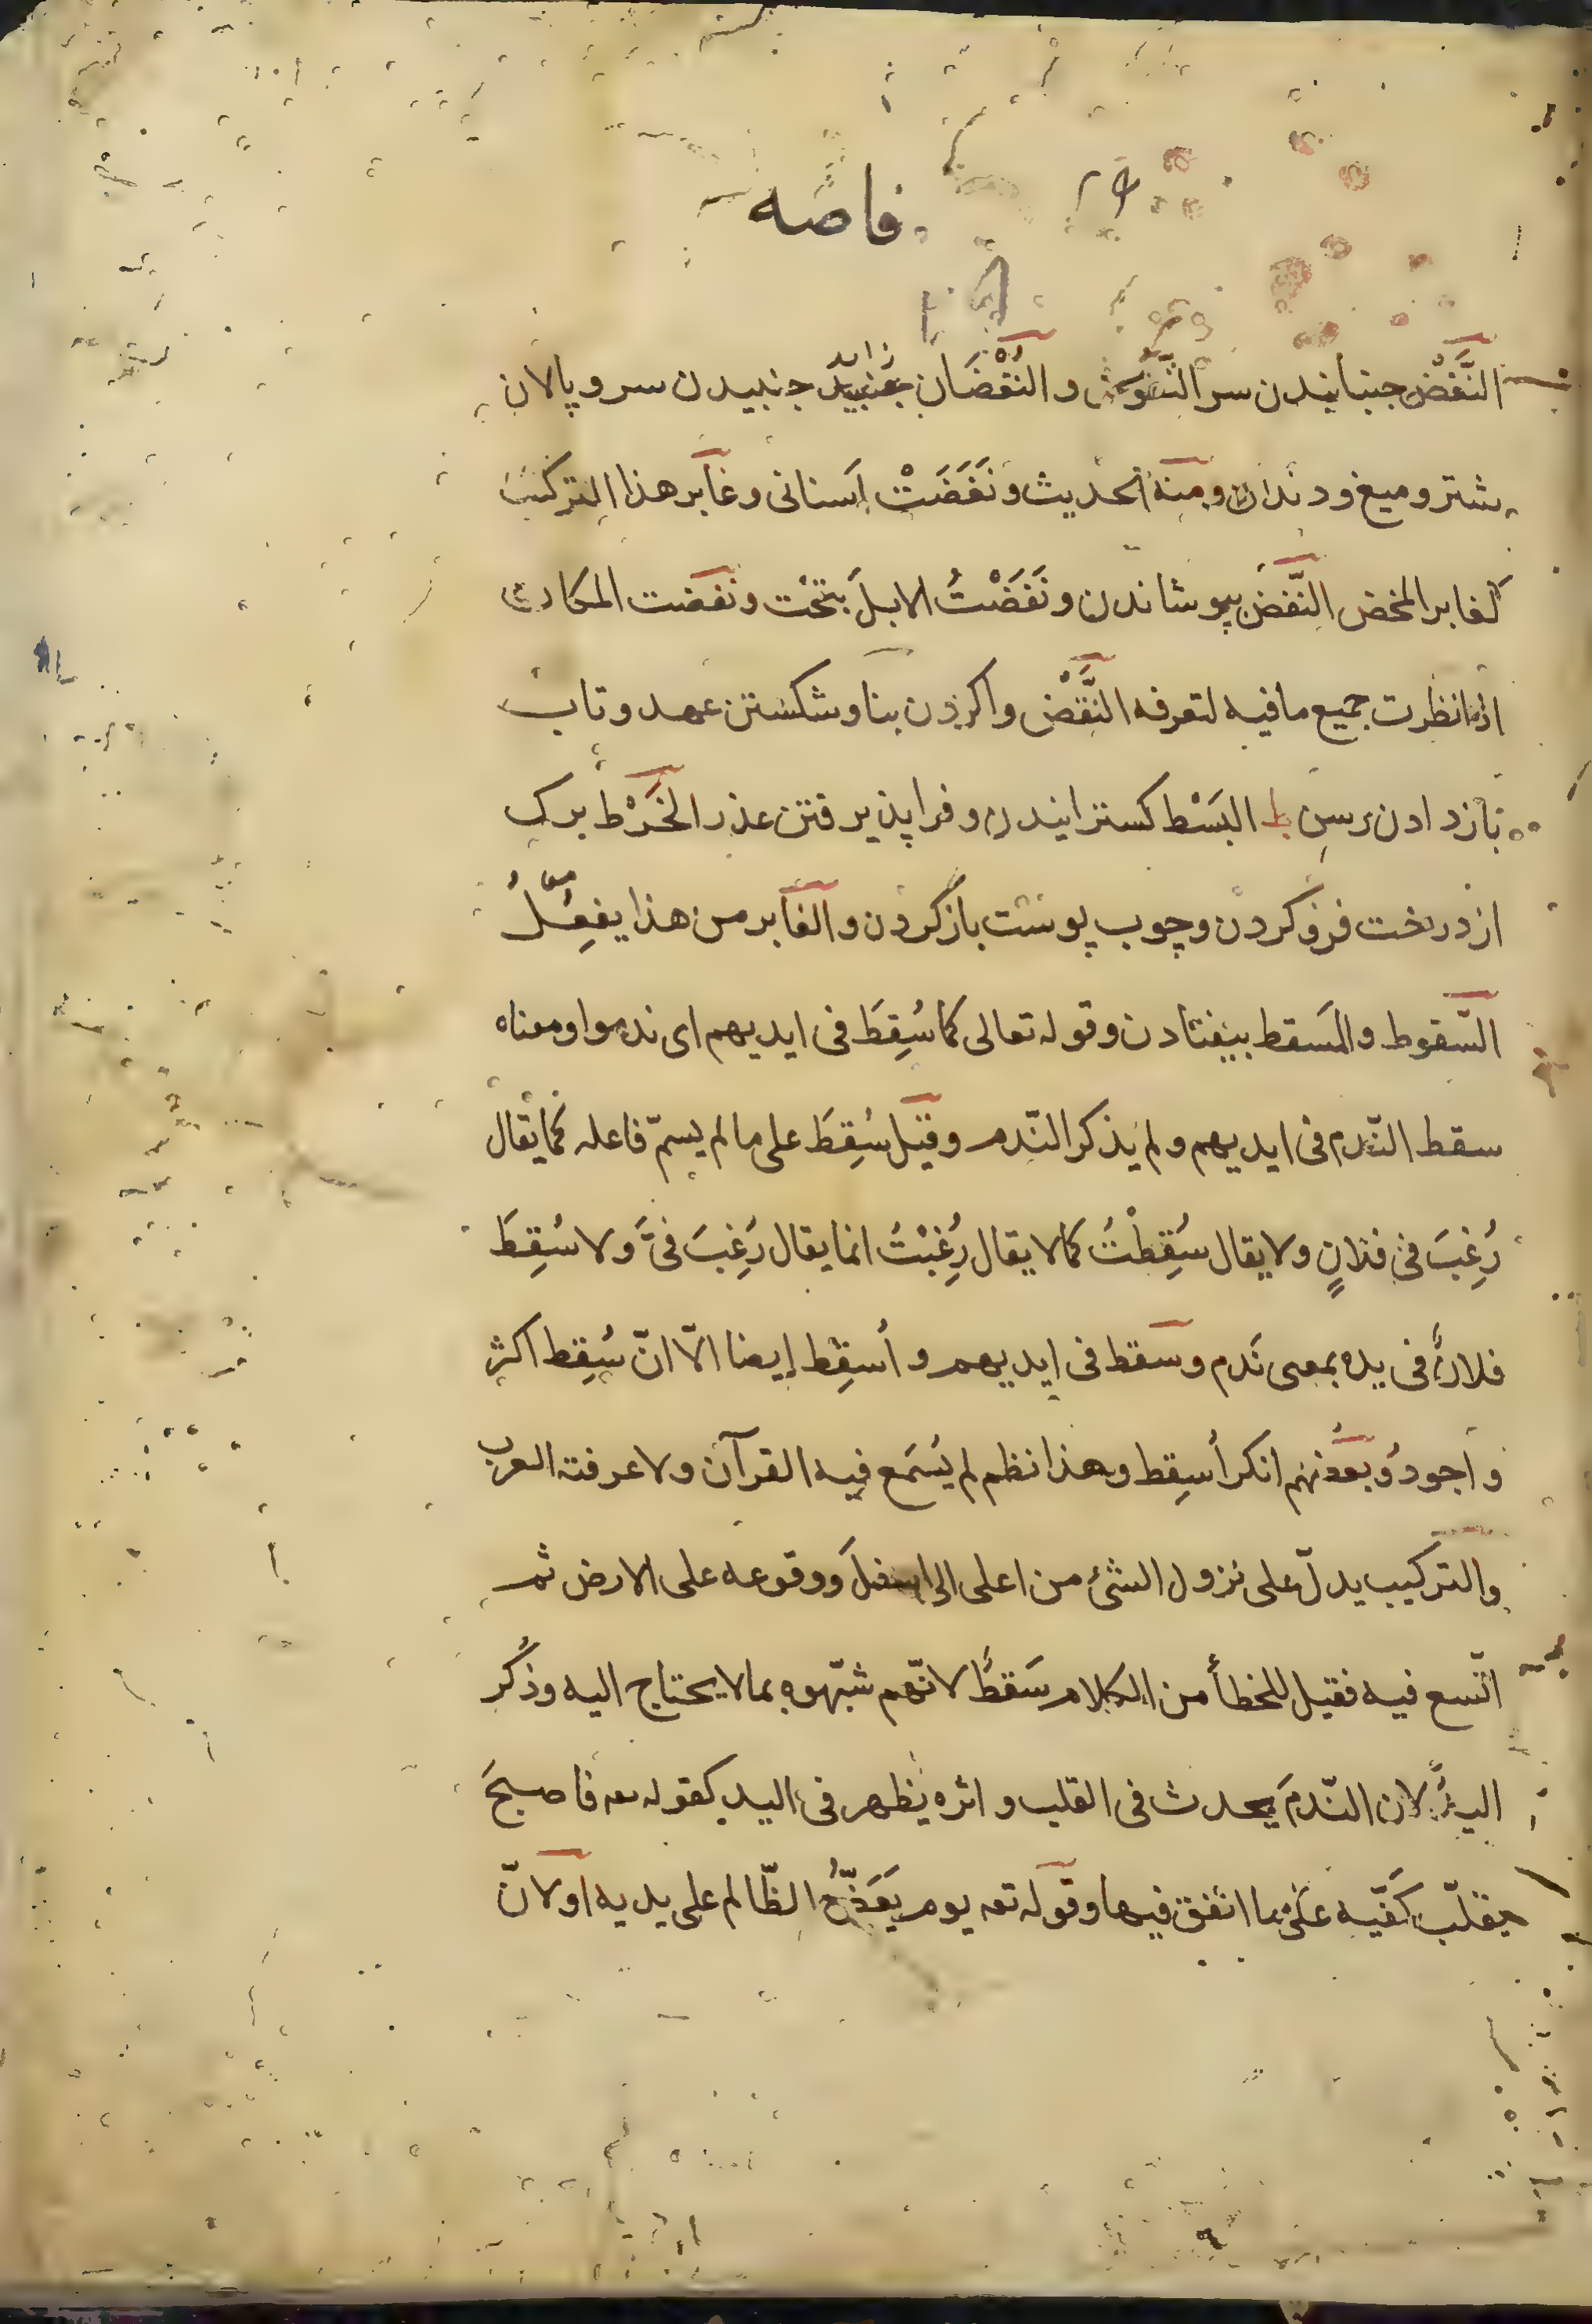 فاصه
النَّغْض جنبانیدن سر النُّغُوض و النُّغْضَان جنبیدن سر و پالان
شتر و میغ و دندان و منه الحدیث و نَغَضَتْ اَسنانی و غابر هذا الترکیب
کغابر المخض النَّفْض بیوشاندن و نَفَضْتُ الابلَ نتجت و نفضت المکان
اذا نظرت جمیع ما فیه لتعرفه النَّقْض واکردن بنا و شکستن عهد و تاب
بازدادن رسن ط البَسْط کسترانیدن و فراپذیرفتن عذر الخَرْط برک
از درخت فرو کردن و چوب پوست باز کردن و الغابر من هذا یفعِل
السّقوط و المَسقط بیفتادن و قوله تعالی کما سُقِطَ فی ایدیهم ای ندموا و معناه
سقط النّدم فی ایدیهم و لم یذکر النّدم و قیل سُقِطَ علی ما لم یسمّ فاعله کما یقال
رُغِبَ فی فلانٍ و لا یقال سُقِطْتُ کما لا یقال رُغِبْتُ انما یقال رُغِبَ فیَّ و لا سُقِطَ
فلانٌ فی یده بمعنی نَدم و سقط فی ایدیهم و اُسقِط ایضا الّا انّ سُقِط اکثر
و اجودُ و بعضهم انکر اُسقِط و هذا نظم لم یُسمَع فیه القرآن و لا عرفته العرب
و الترکیب یدلّ علی نزول الشئ من اعلی الی اسفلَ و وقوعه علی الارض ثم
اتّسع فیه فقیل للخطأ من الکلام سَقطٌ لانّهم شبّهوه بما لا یحتاج الیه و ذُکر
الید لان النّدمَ یحدث فی القلب و اثره یظهر فی الید کقوله تعه فاصبحَ
یقلّب کَفَّیه علی ما انفق فیها و قوله تعه یوم یَعَضُّ الظّالم علی یدیه او لانّ